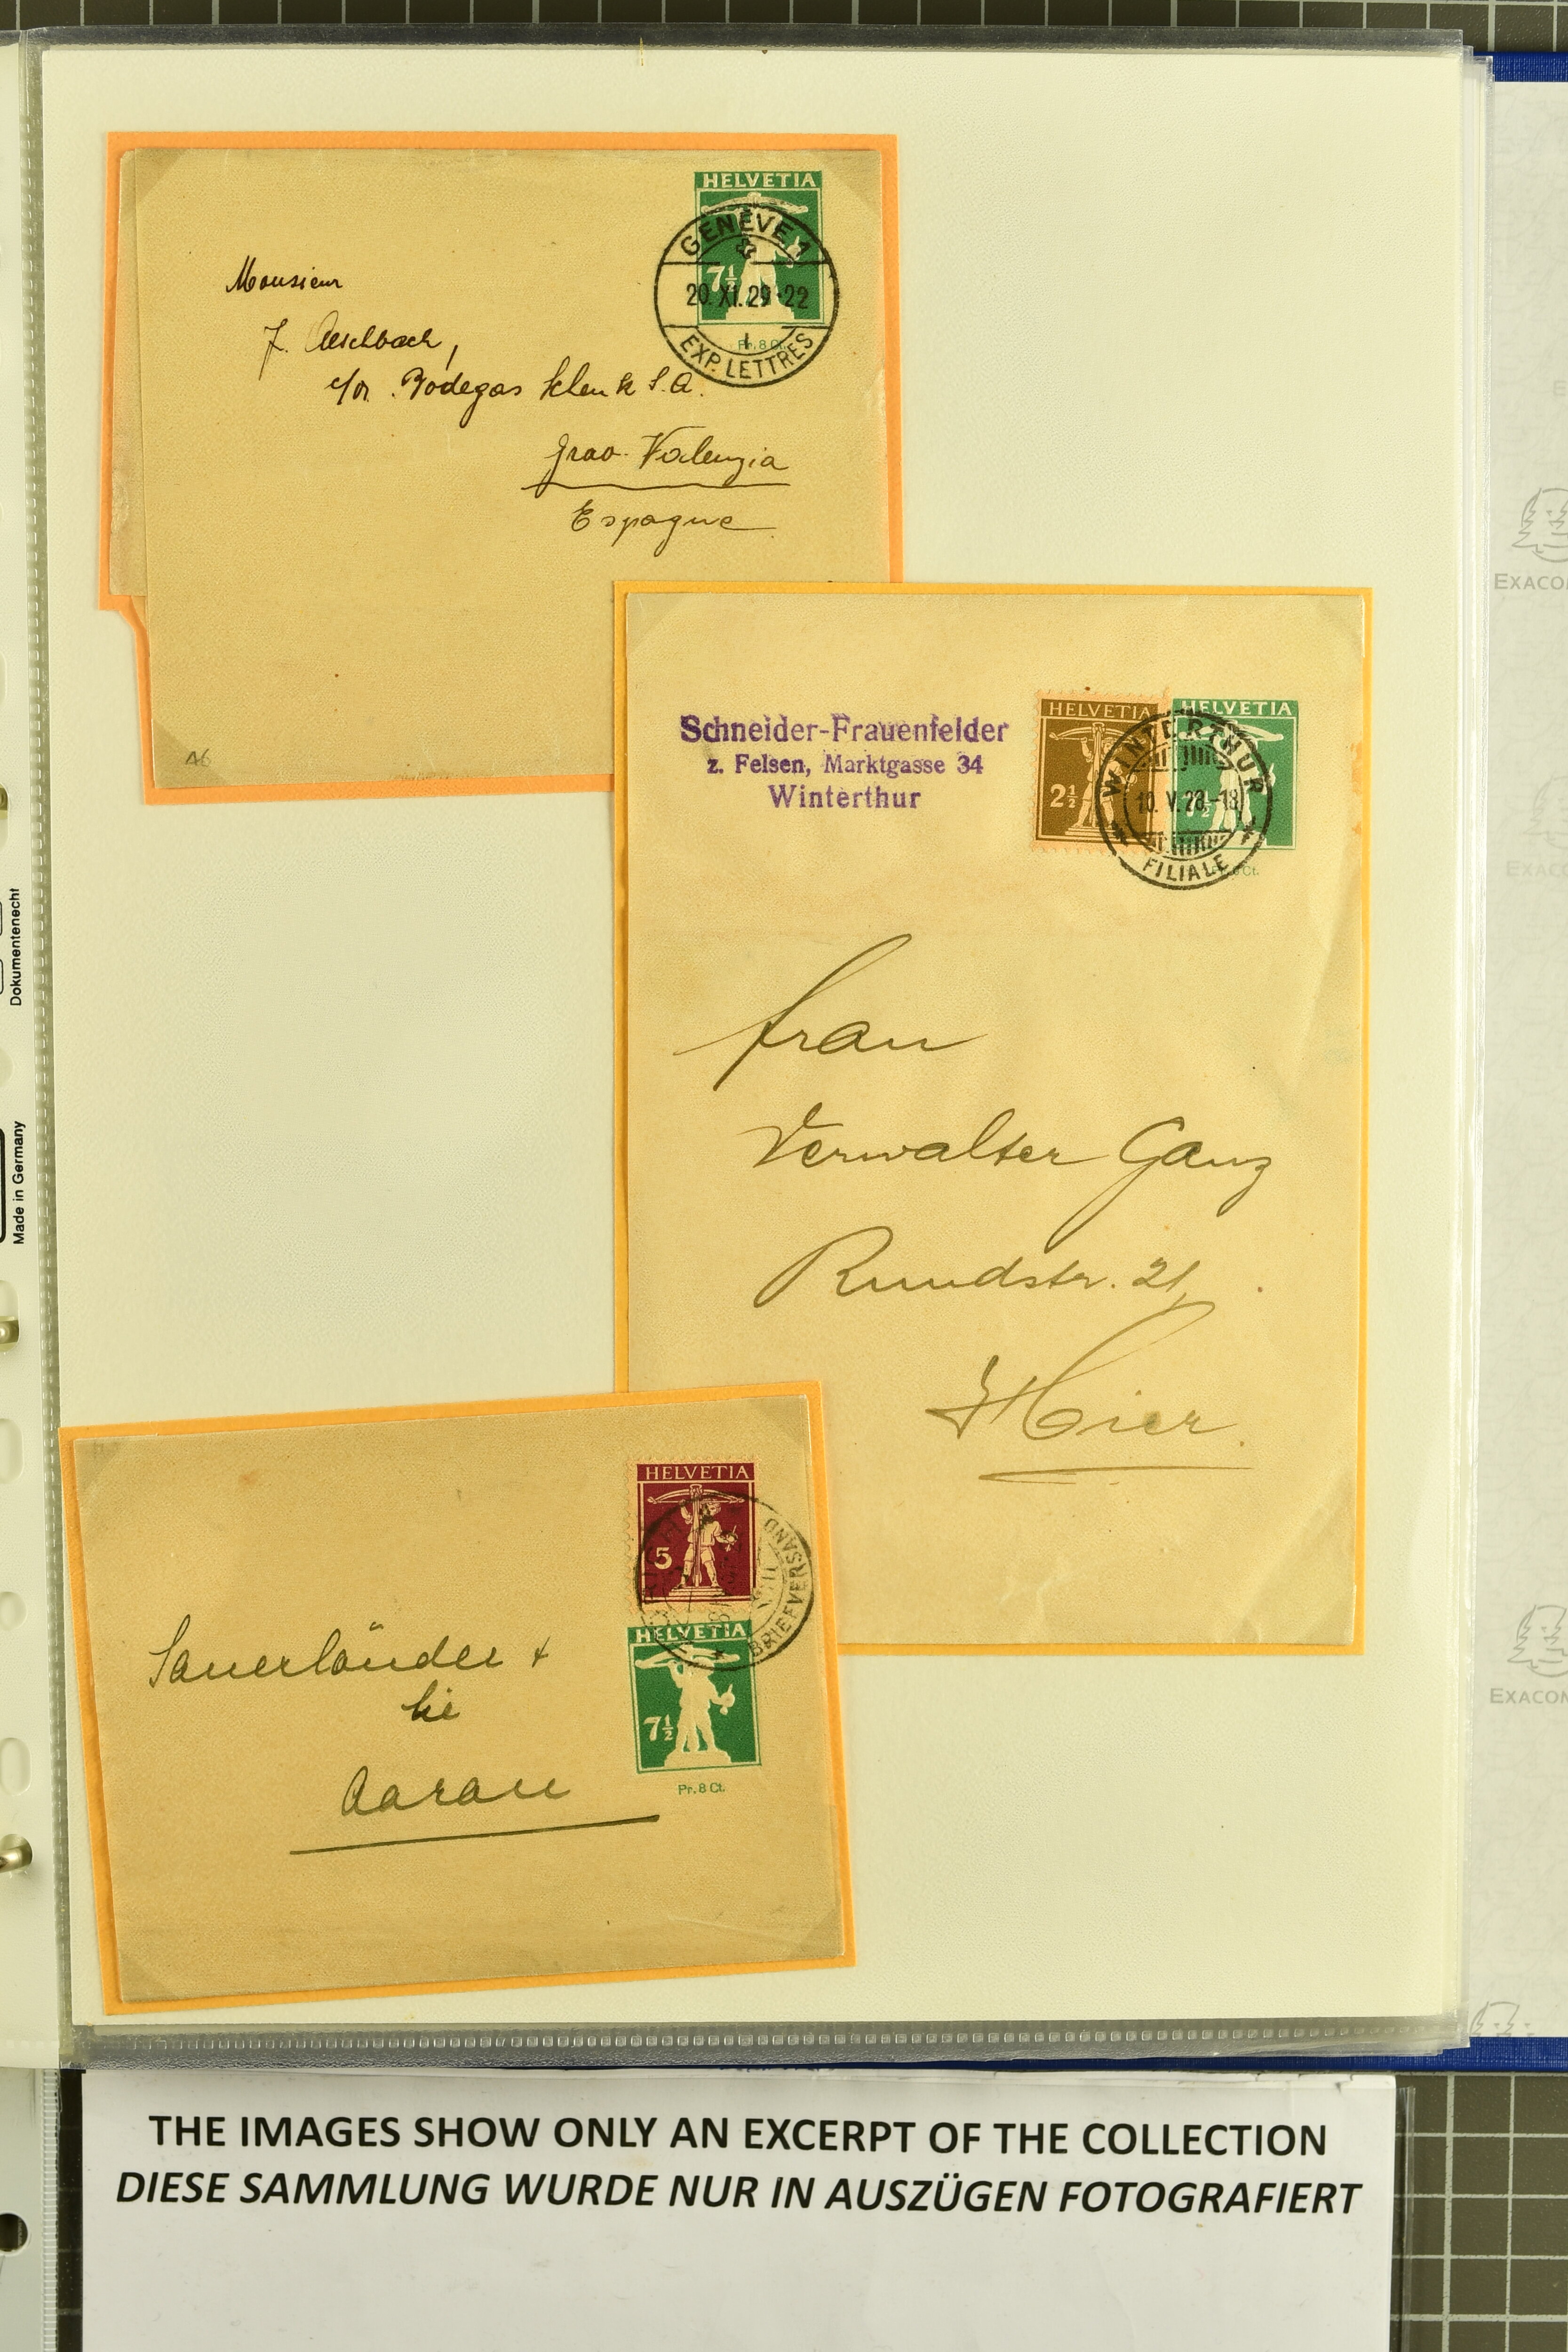 HELVETIA
7½
Pr. 8 Ct.
GENÈVE 1
20.XI.29-22
EXP. LETTRES
Monsieur
J. Aeschbach,
c/o. Bodegas Schenk S.A.
Grao-Valenzia
Espagne
Schneider-Frauenfelder
z. Felsen, Marktgasse 34
Winterthur
HELVETIA
2½
HELVETIA
7½
WINTERTHUR
10.V.28-18
FILIALE
Frau
Verwalter Ganz
Rundstr. 21,
Hier.
HELVETIA
5
BRIEFVERSAND
HELVETIA
7½
Pr. 8 Ct.
Sauerländer +
Cie
Aarau
Dokumentenecht
Made in Germany
EXACOM
EXACO
EXACOM
THE IMAGES SHOW ONLY AN EXCERPT OF THE COLLECTION
DIESE SAMMLUNG WURDE NUR IN AUSZÜGEN FOTOGRAFIERT